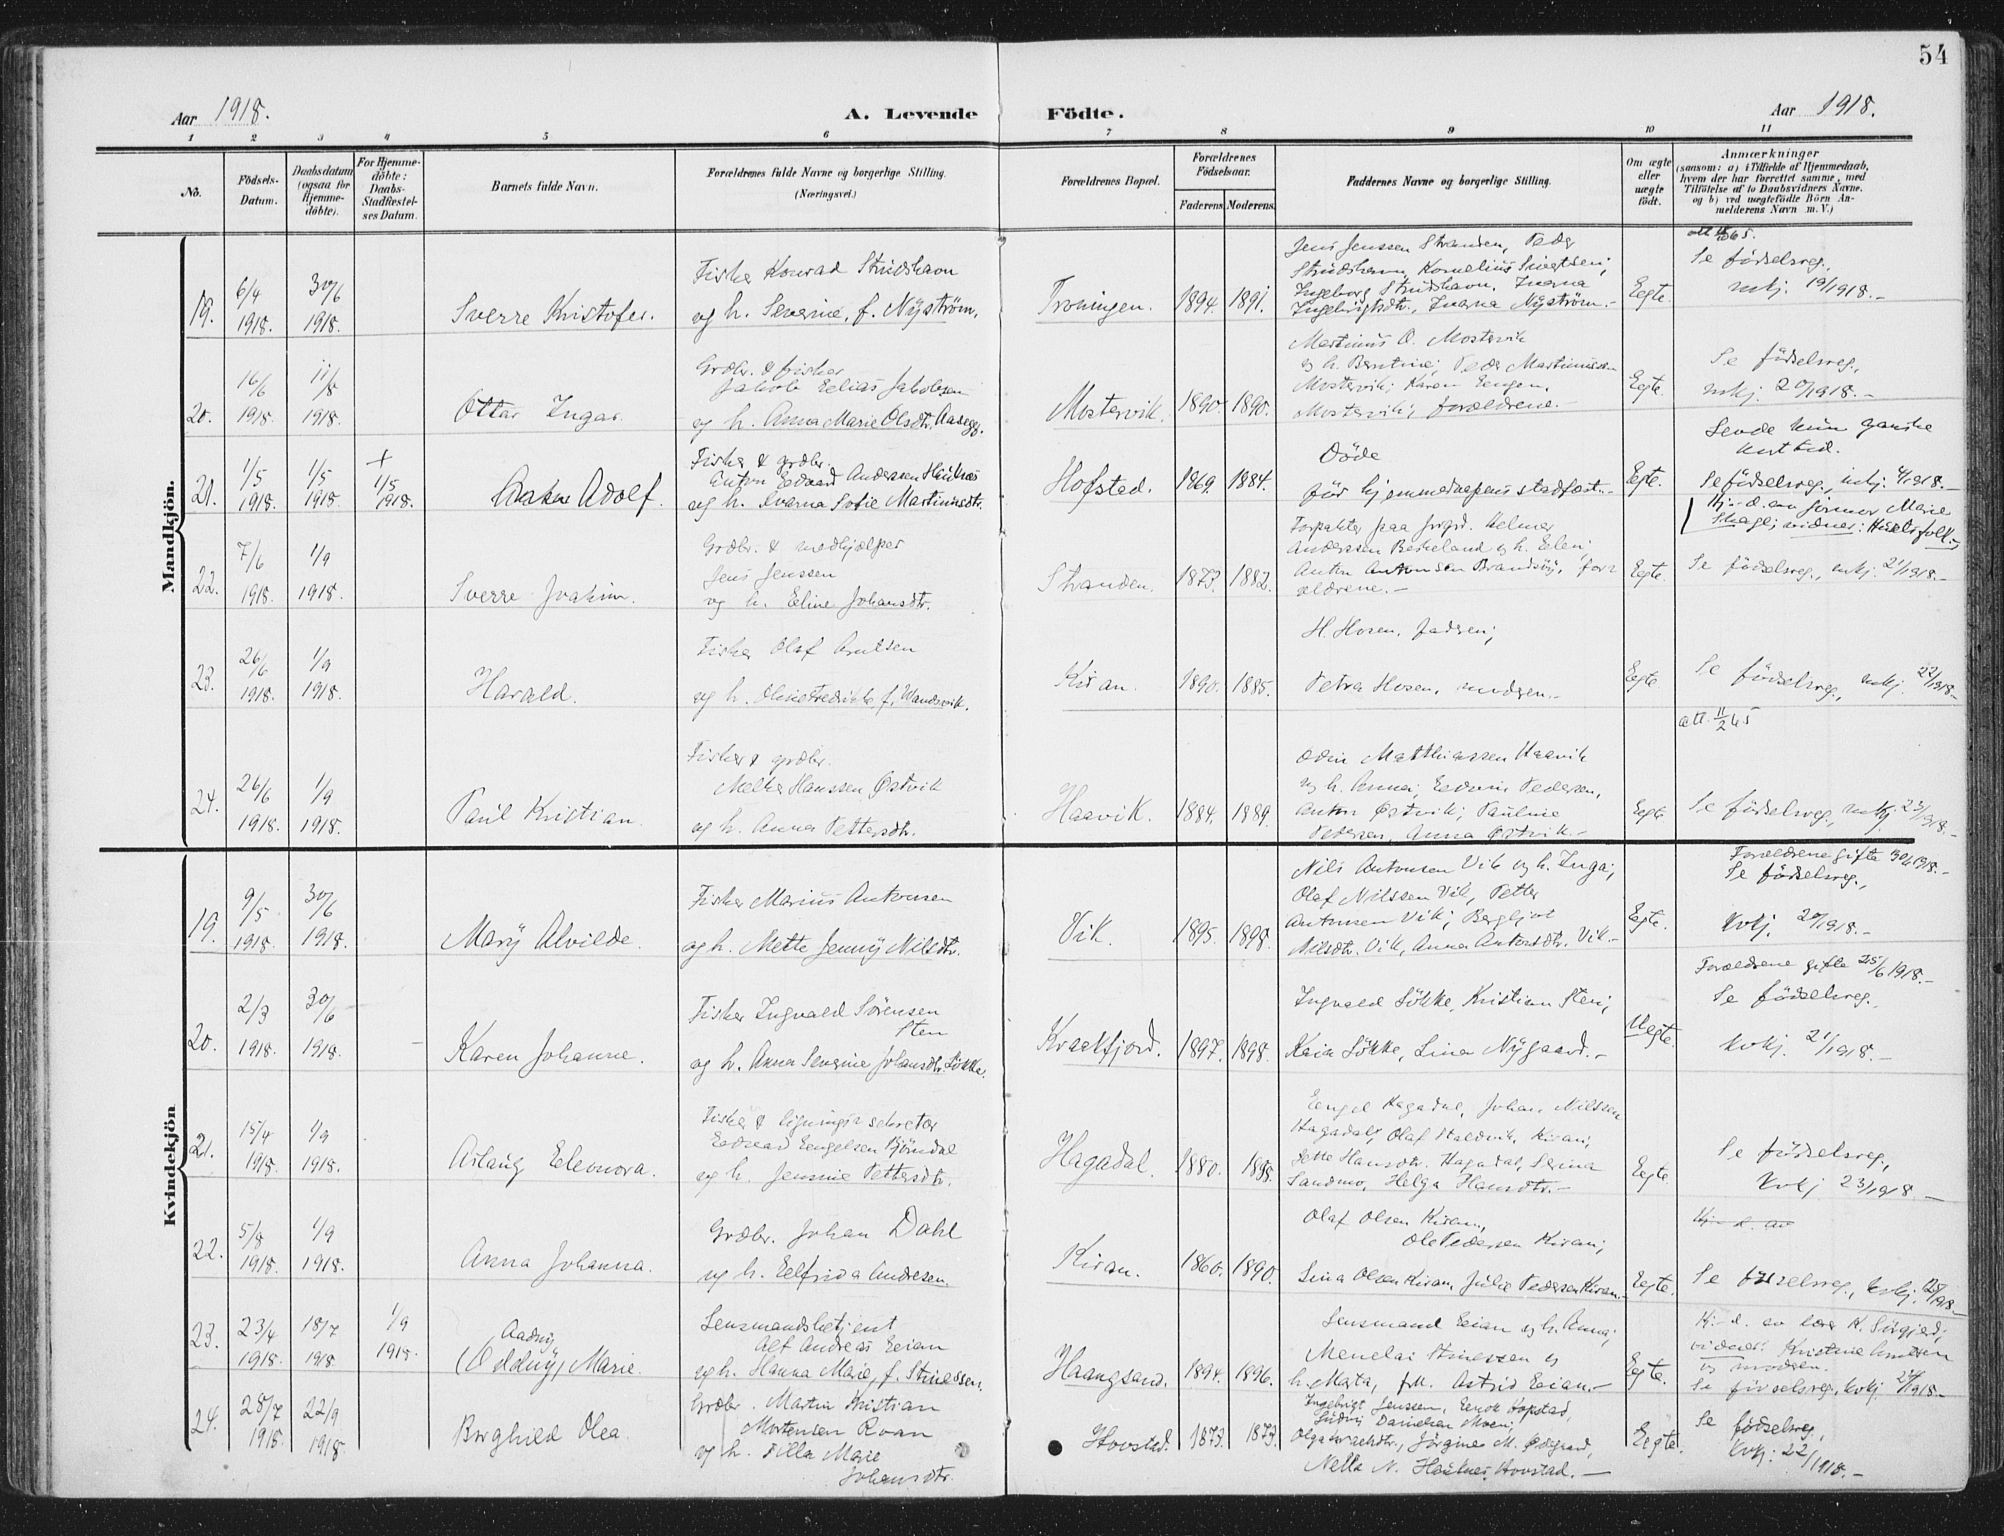 54
Aar 1918. A. Levende Födte. Aar 1918.
1 2 3 4 5 6 7 8 9 10 11
No.
Födsels-
Datum.
Daabsdatum
(ogsaa for
Hjemme-
döbte).
For Hjemme-
döbte:
Daabs-
Stadfæstel-
ses Datum.
Barnets fulde Navn.
Forældrenes fulde Navne og borgerlige Stilling.
(Næringsvei.)
Forældrenes Bopæl.
Forældrenes
Födselsaar.
Faderens. Moderens.
Faddernes Navne og borgerlige Stilling.
Om ægte
eller
uægte
födt.
Anmærkninger
(saasom: a) i Tilfælde af Hjemmedaab,
hvem der har forrettet samme, med
Tilföielse af to Daabsvidners Navne.
og b) ved uægtefödte Börn An-
melderens Navn m. V.)
Mandkjön.
19.
6/4
1918.
30/6
1918.
Sverre Kristofer.
Fisker Konrad Strudshavn
og h. Severine, f. Nyström.
Troningen.
1894. 1891.
Jens Jenssen Stranden, Peder
Strudshavn, Kornelius
Ingeborg Strudshavn,
Nyström.-
Egte.
Se födselsreg.,
mkj. 19/1918.-
20.
16/6
1918.
11/8
1918.
Ottar Ingar.
Grdbr. & fisker
Jakob Elias Jakobsen
og h. Anna Marie Olsdtr. Aasegg.
Mostervik.
1890. 1890.
Martinus O. Mostervik
og h. Berntine; Peder Martinussen
Mostervik; Karen
Mostervik; forældrene.-
Egte.
Se födselsreg.,
mkj. 20/1918.-
21.
1/5
1918.
1/5
1918.
+
1/5
1918.
Adolf.
Fisker & grdbr.
Anton Edvard Andersen
og h. Ivarna Sofie Martinusdtr.
Hofstad.
1869. 1884.
Döde
för hjemmedaapens stadfæst.-
Egte.
Levde kun ganske
kort tid.
Se födselsreg., mkj. 4/1918.-
Hj.-d. av jormor Marie
vidner: Husets folk.-
22.
7/6
1918.
1/9
1918.
Sverre Joakim.
Grdbr. & medhjælper
Jens Jenssen
og h. Eline Johansdtr.
Stranden.
1873. 1882.
Forpakter paa prgd. Helmer
Anderssen Berkeland og h. Elen;
Anton Antonsen Brandsöy, for-
ældrene.-
Egte.
Se födselsreg., mkj. 21/1918.-
23.
26/6
1918.
1/9
1918.
Harald.
Fisker Olaf
og h.
Kiran.
1890. 1885.
H. Hosen, fadren;
Petra Hosen, modren.-
Egte
Se födselsreg., mkj. 22/1918.-
att. 11/2 65
24.
26/6
1918.
1/9
1918.
Paul Kristian.
Fisker & grdbr.
Melker Hanssen Östvik
og h. Anna Pettersdtr.
Haavik.
1884. 1889.
Odin Matthiassen Haavik
og h. Anna; Edvin Pedersen,
Anton Östvik; Pauline
Pedersen, Anna Östvik.-
Egte
Se födselsreg., mkj. 23/1918.-
Kvindekjön
19.
9/5
1918.
30/6
1918.
Mary Alvilde.
Fisker Marius Antonsen
og h. Mette Jenny Nilsdtr.
Vik.
1895. 1898.
Nils Antonsen Vik og h. Inga;
Olaf Nilssen Vik, Petter
Antonsen Vik; Bergljot
Nilsdtr. Vik, Anna Antonsdtr. Vik.-
Egte.
Forældrene gifte 30/6 1918.-
Se födselsreg.,
kvkj. 20/1918.-
20.
2/3
1918.
30/6
1918.
Karen Johanne.
Fisker Ingvald Sörensen
Sten
og h. Anna Severine Johansdtr. Lökke.
Kraakfjord.
1897. 1898.
Ingvald Lökke, Kristian Sten;
Kaia Lökke, Lina Nygaard.-
Uegte.
Forældrene gifte 25/6 1918.-
Se födselsreg.
kvkj. 21/1918.-
21.
15/4
1918.
1/9
1918.
Aslaug Eleonora.
Fisker & ligningssekretær
Edvard Engelsen
og h. Jensine Pettersdtr.
Hagadal.
1880. 1885.
Engel Hagadal, Johan Nilssen
Hagadal, Olaf Kiran;
Jette Hansdtr. Hagadal,
Sandmo, Helga Hansdtr.-
Egte.
Se födselsreg.,
kvkj 23/1918.-
22.
5/8
1918.
1/9
1918.
Anna Johanna.
Grdbr. Johan Dahl
og h. Elfrida Andresen.
Kiran.
1860. 1890.
Olaf Olsen Kiran,
Ole Pedersen Kiran;
Lina Olsen Kiran, Julie Pedersen Kiran.-
Egte.
Hj.-d. av
Se födselsreg., kvkj.
23.
23/4
1918.
18/7
1918
1/9
1918.
Aadny
(Oddny) Marie.
Lensmandsbetjent
Alf Andreas Eian
og h. Hanna Marie, f. Stinessen.
Haangsand.
1894. 1896.
Lensmand Eian og h. Anna;
Menelai Stinessen og
h. Marta, frk. Astrid Eian.-
Egte.
Hj.-d. av lærer K.
vidner: Kristine Knutsen
og modren.
Se födselsreg., kvkj 24/1918.-
24.
28/7
1918.
22/9
1918
Borghild Olea.
Grdbr. Martin Kristian
Mortensen Roan
og h. Milla Marie
Johansdtr.
Hovstad.
1873. 1873.
Ingebrigt Jenssen,
Ludvig Danielsen Moen;
Jörgine M.
Nella N. Hovstad.-
Egte.
Se födselsreg.,
kvkj. 22/1918.-